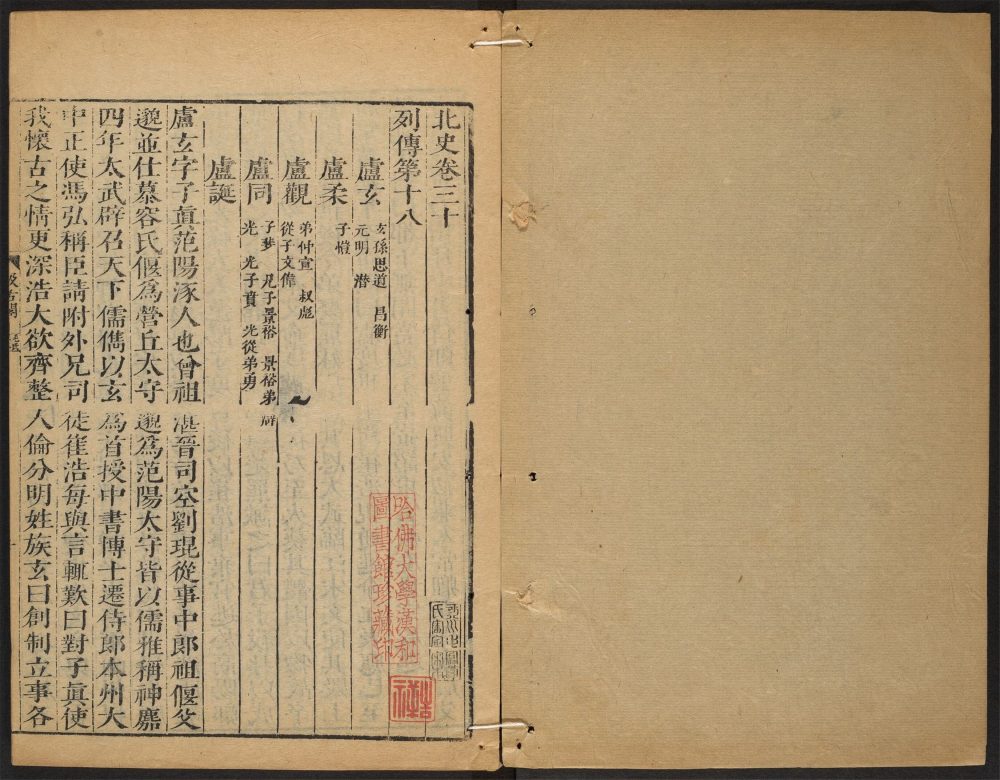 北史卷三十
列傳第十八
盧玄 玄孫思道 昌衡
元明 潛
盧柔 子愷
盧觀 弟仲宣 叔彪
從子文偉
盧同 子斐 兄子景裕 景裕弟辯
光 光子賁 光從弟勇
盧誕
盧玄字子真范陽涿人也曾祖湛晉司空劉琨從事中郎祖偃父
邈並仕慕容氏偃為營丘太守邈為范陽太守皆以儒雅稱神䴥
四年太武辟召天下儒儁以玄為首授中書博士遷侍郎本州大
中正使馮弘稱臣請附外兄司徒崔浩每與言輒歎曰對子真使
我懷古之情更深浩大欲齊整人倫分明姓族玄曰創制立事各
汲古閣
哈佛大學漢和
圖書館珍藏印